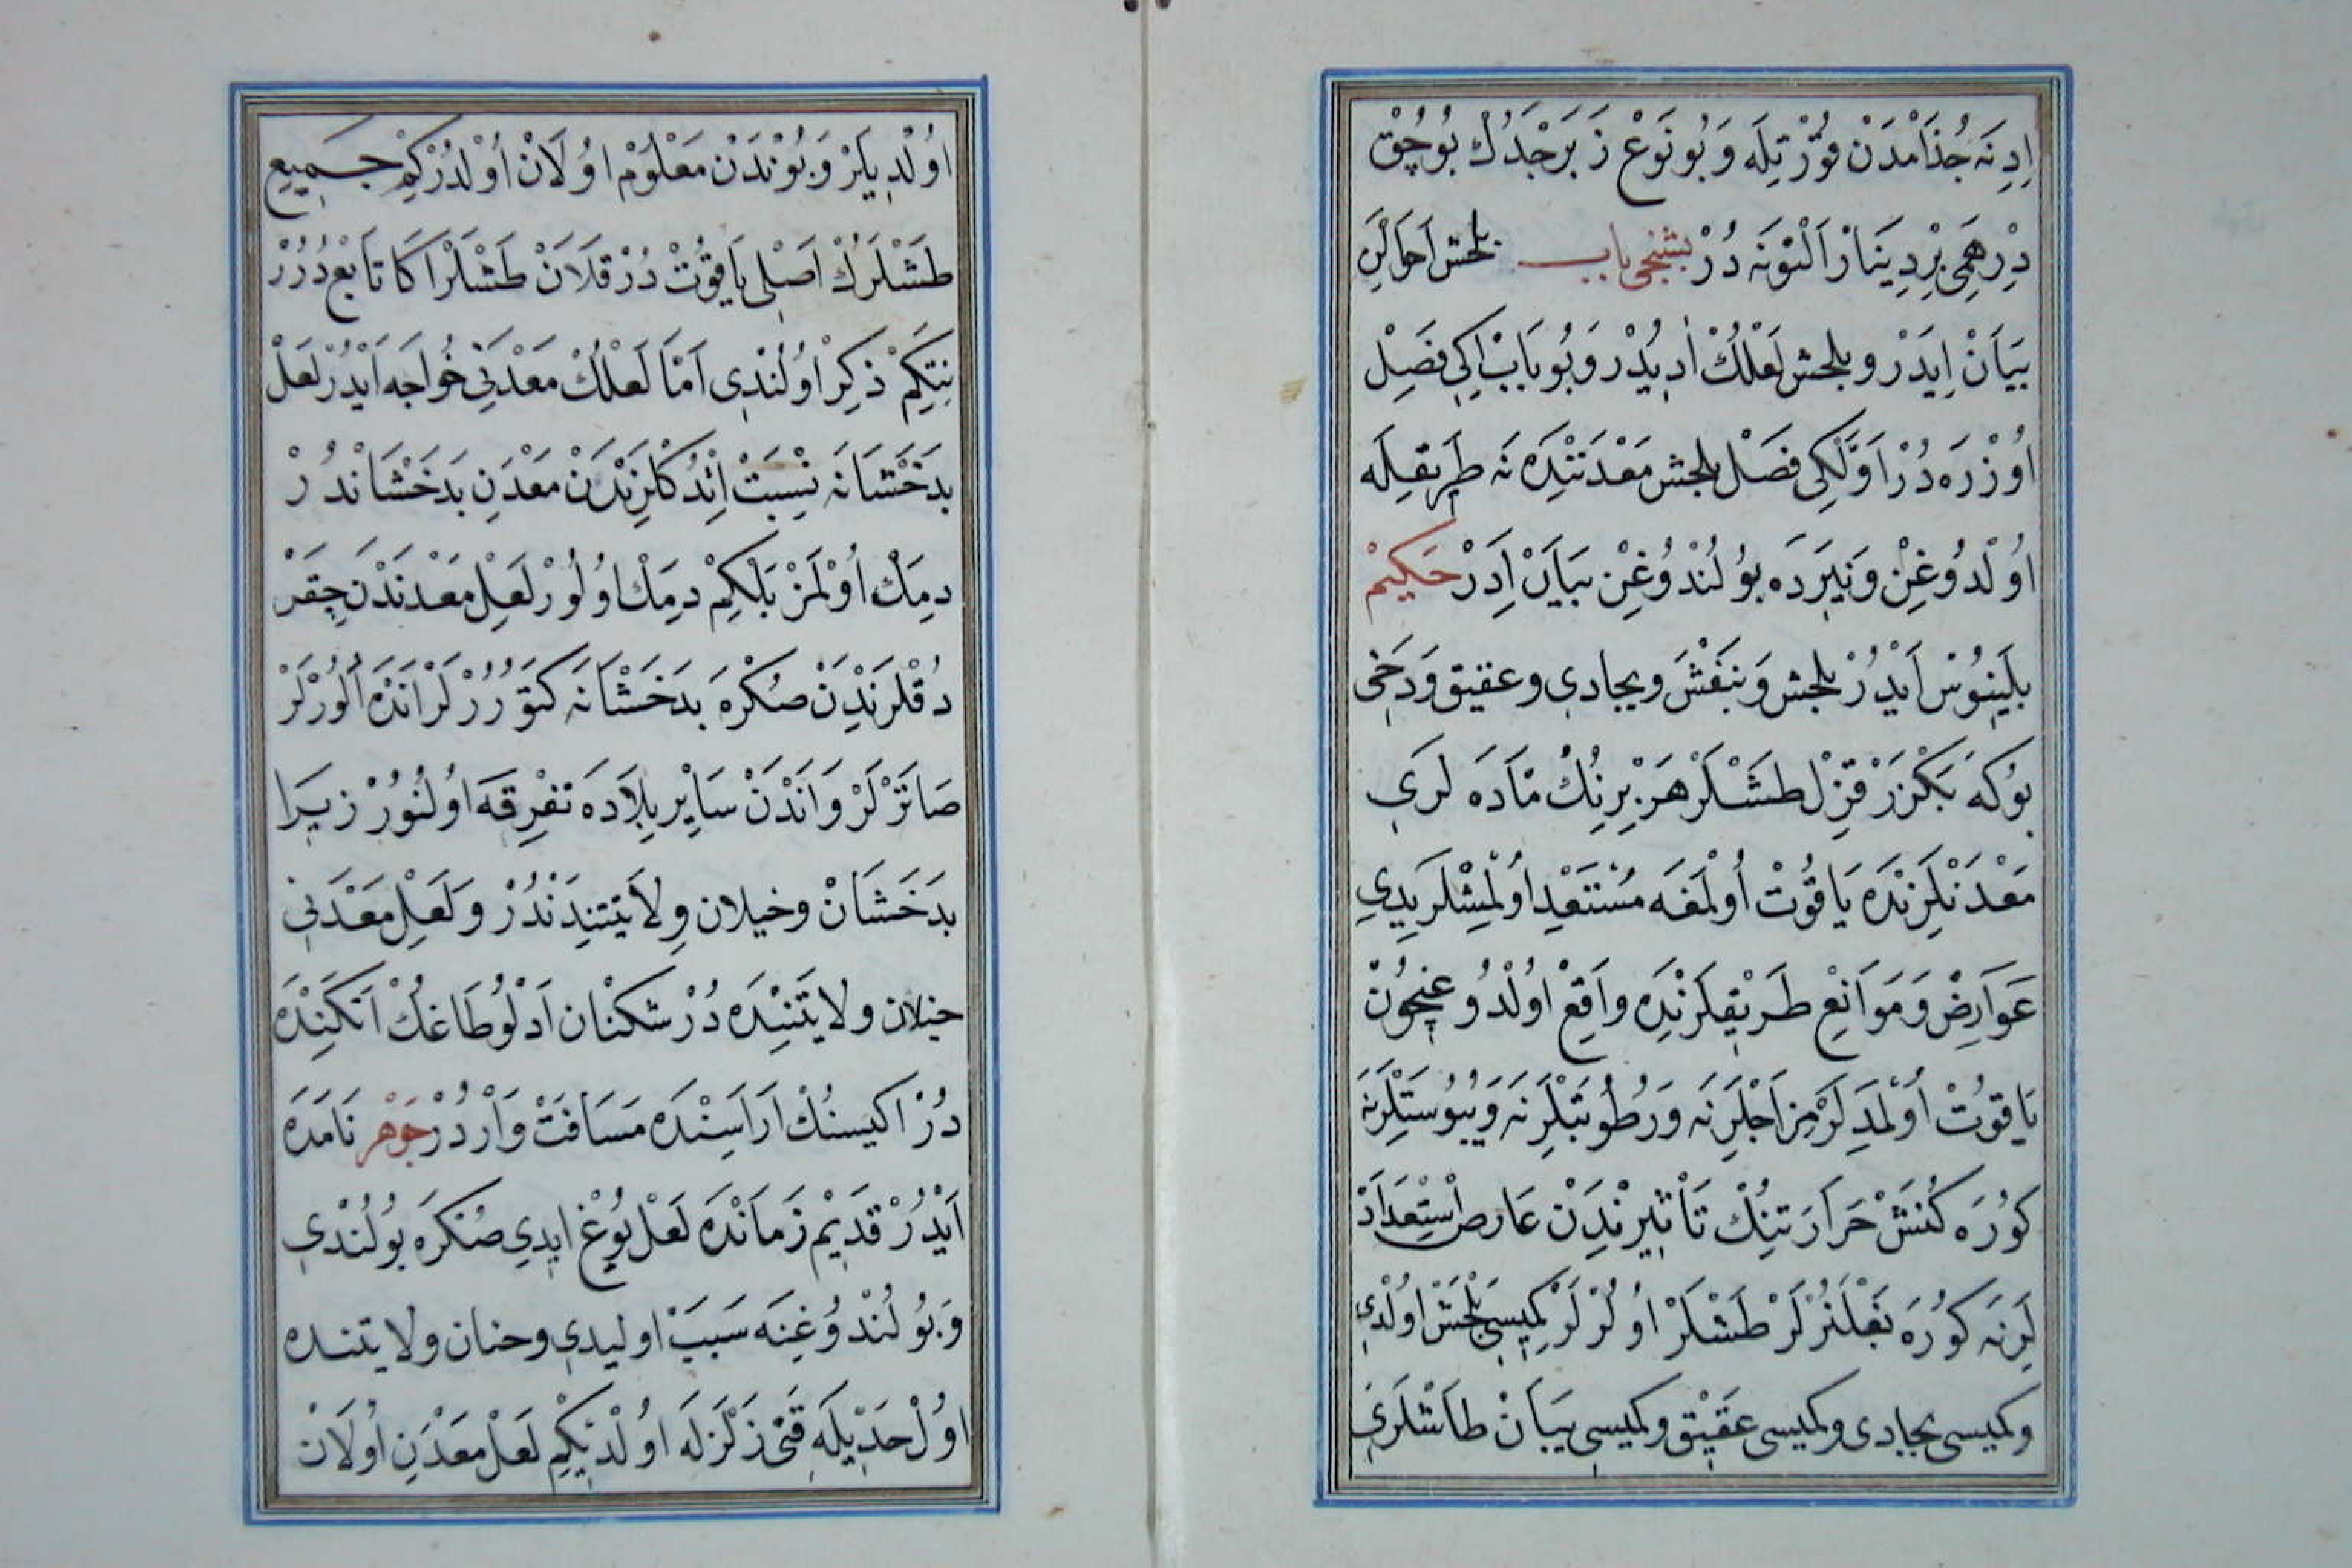 اِدِنَه جُذَامْدَنْ قُوْرْتِلَه وَ بُو نَوْعْ زَبَرْجَدُكْ بُوچُقْ
دِرْهَمِى بِرْ دِينَارْ اَلْتُونَه دُرْ بشنجى باب بلخش اَحوَالِن
بَيَانْ اِيدَرْ و بلخش لَعْلُكْ اَدِ يُدْر وَ بُو بَابْ اِكِى فَصِلْ
اُوزْرَه دُرْ اَوَّلْكِى فَصَلْ بلخش مَعْدَنِنْدَه نَه طَرِيقِلَه
اُولْدُوغِنْ وَ نَيِرَدَه بُولُنْدُوغِنْ بَيَانْ اِدَرْ حَكِيمْ
بِلَينُوسْ اَيْدُرْ بلخش وَ بَنَفْشَ و بجادى و عقيق وَ دَخِى
بُوكَه بَكْزَرْ قِزِلْ طَشْلَرْ هَرْ بِرِنُكْ مَادَه لرى
مَعْدَنْلَرِنْدَه يَاقُوتْ اُولْمَغَه مُسْتَعْدِ اُولْمِشْلَرِيدِى
عَوَارِضْ وَ مَوَانِعْ طَرِيقِلَرِنْدَه وَاقِعْ اُولْدُوغِيچُونْ
يَاقُوتْ اُولْمَدِلَرْ مِزَاجْلَرِنَه وَ رُطُوبَتْلَرِنَه وَ يُبُوسَتْلَرِنَه
كُورَه كُنَشْ حَرَارَتِنُكْ تَأْثِيرِنْدَنْ عَارض اِسْتِعْدَادْ
لَرِنَه كُورَه بَغْلَنُرْلَرْ طَشْلَرْ اُولُرْلَرْ كِمِيسِى بَلْخَشْ اُولْدِى
وكميسى بجادى وكميسى عَقِيقْ وكميسى بَيَانْ طَاشْلَرِى
اُولْدِيلَرْ وَ بُوْنْدَنْ مَعْلُومْ اُولَانْ اُولْدُرْكِمْ جَمِيعِ
طَشْلَرُكْ اَصْلِى يَاقُوتْ دُرْ قَلَانْ طَشْلَرْ اَكَا تَابِعْ دُرُرْ
نِتَكِمْ ذِكِرْ اُولُنْدِى اَمَّا لَعْلُكْ مَعْدَنِى خُوَاجَه اَيْدُرْ لَعَلْ
بَدَخْشَانَه نِسْبَتْ اِتْدُكْلَرِنْدَنْ مَعْدَنِ بَدَخْشَانْدُرْ
دِمَكْ اُولْمَزْ بَلْكِمْ دِمَكْ اُولُورْ لَعَلْ مَعْدَنْدَنْ چِقَرْ
دُقْلَرِنْدَنْ صُكْرَه بَدَخْشَانَه كَتُورُرْلَرْ اَنْدَه اَلُورْلَرْ
صَاتَرْلَرْ وَ اَنْدَنْ سَايِرْ بِلَادَه تَفْرِقَه اُولُنُورْ زِيرَا
بَدَخْشَانْ وخيلان وِلَايَتِنْدَنْدُرْ وَ لَعَلْ مَعْدَنِى
خيلان ولايَتِنْدَه دُرْ شكنان اَدْلُو طَاغُكْ اَتَكِنْدَه
دُرْ اكيسنُكْ اَرَاسِنْدَه مَسَافَتْ وَارْدُرْ جَوْهر نَامَدَه
اَيْدُرْ قَدِيمْ زَمَانْدَه لَعَلْ يُوغ ايدِى صُنْكَرَه بُولُنْدِى
وَ بُولُنْدُوغِنَه سَبَبْ اوليدى وحنان ولايتنده
اُولْ حَدِيلَه قَتِى زَلْزَلَه اُولْدِيكِمْ لَعَلْ مَعْدَنِ اُولَانْ